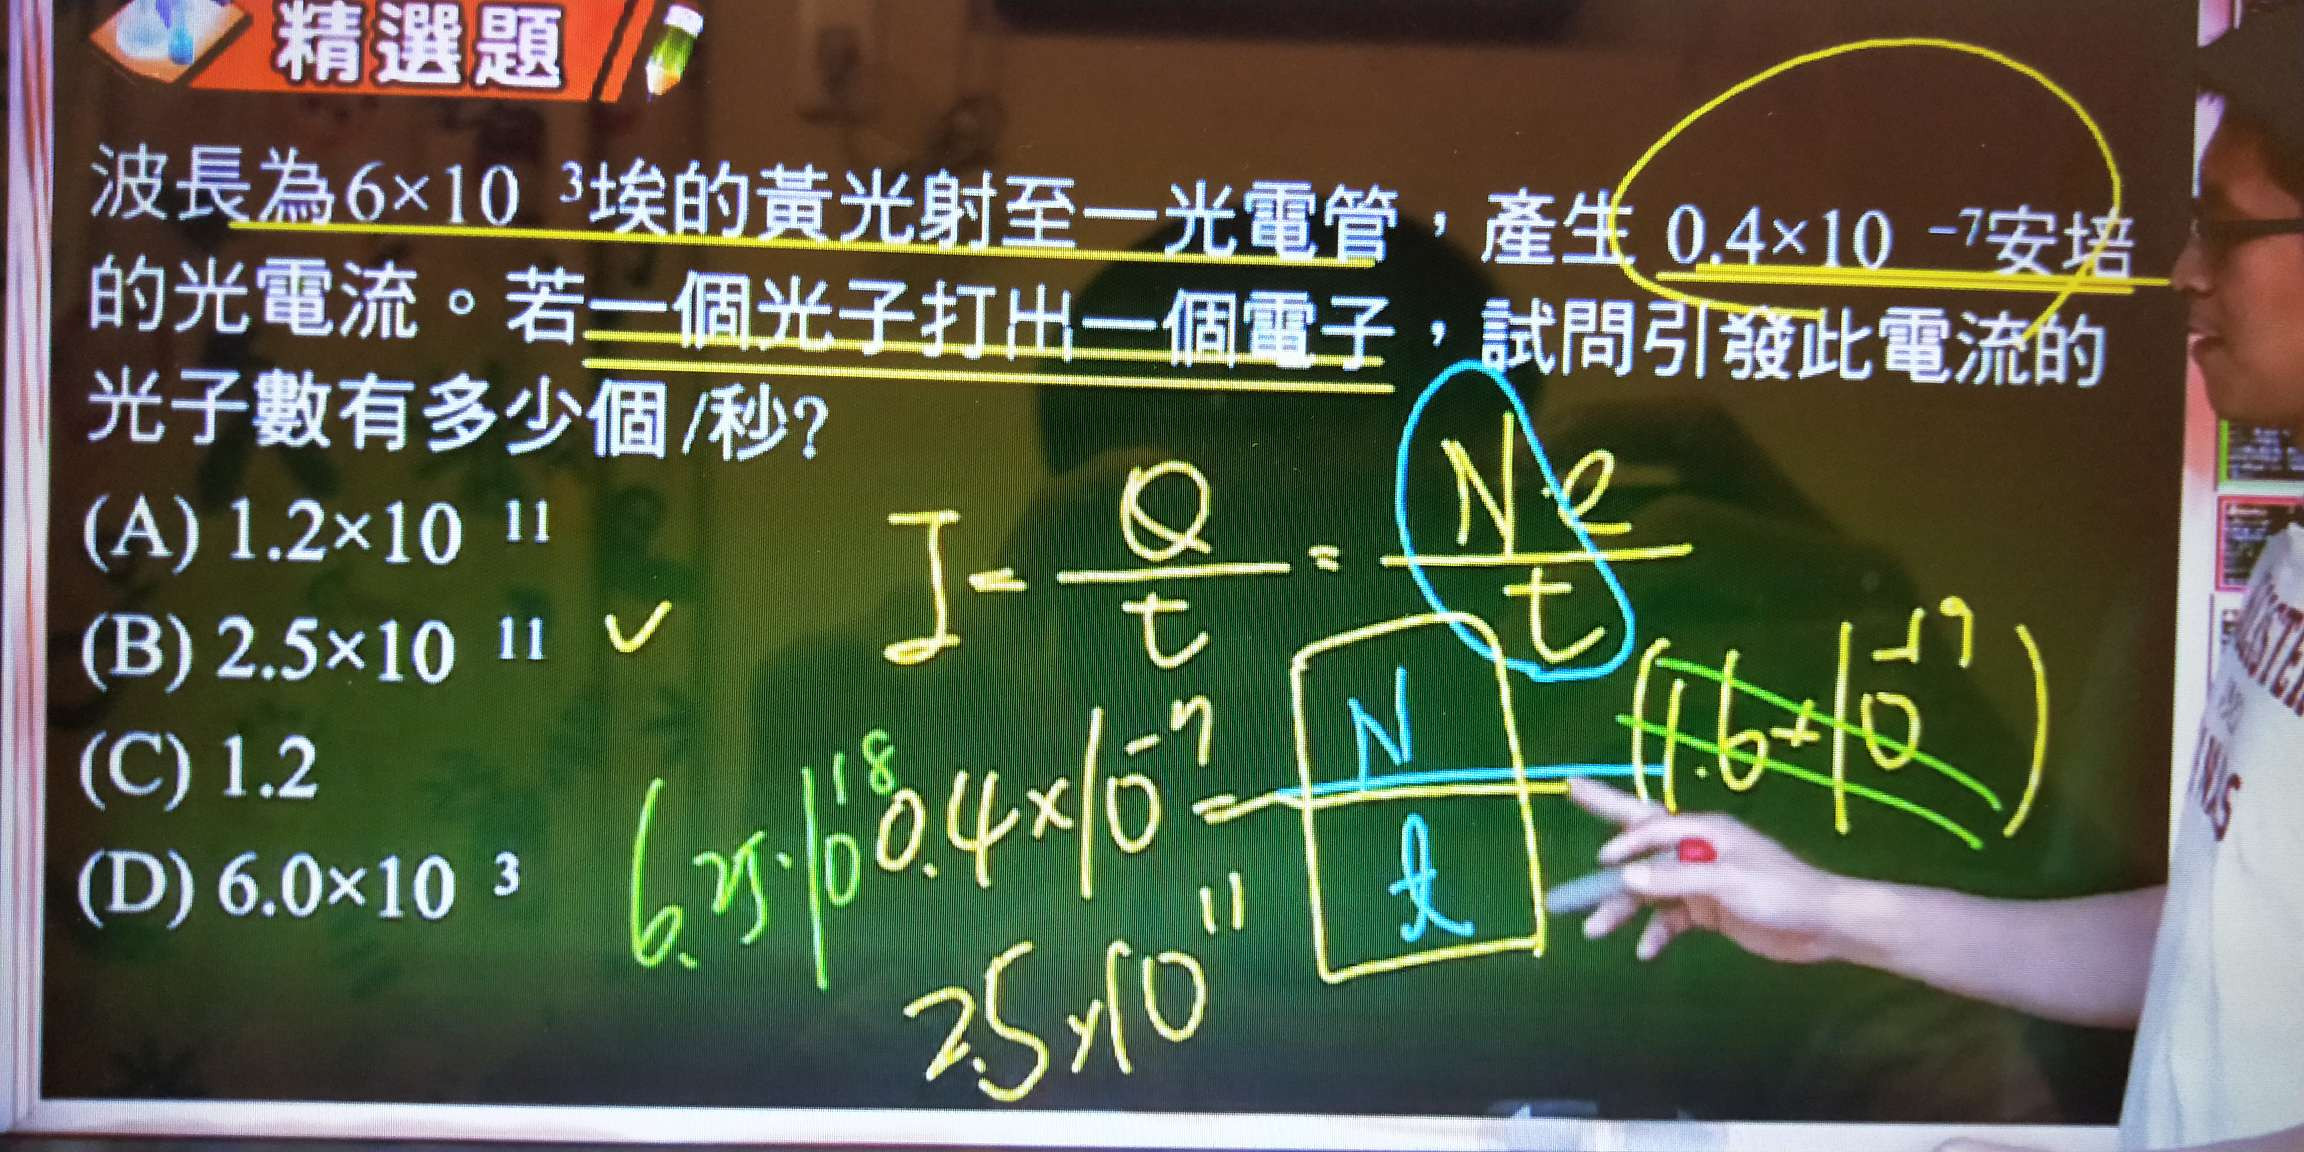 精選題
波長為6×10 ³埃的黃光射至一光電管，產生 0.4×10 ⁻⁷安培
的光電流。若一個光子打出一個電子，試問引發此電流的
光子數有多少個/秒?
(A) 1.2×10 ¹¹
(B) 2.5×10 ¹¹ ✓
(C) 1.2
(D) 6.0×10 ³
I = Q/t = N·e/t
0.4×10⁻⁷ = N/t (1.6×10⁻¹⁹)
6.25·10¹⁸
2.5×10¹¹